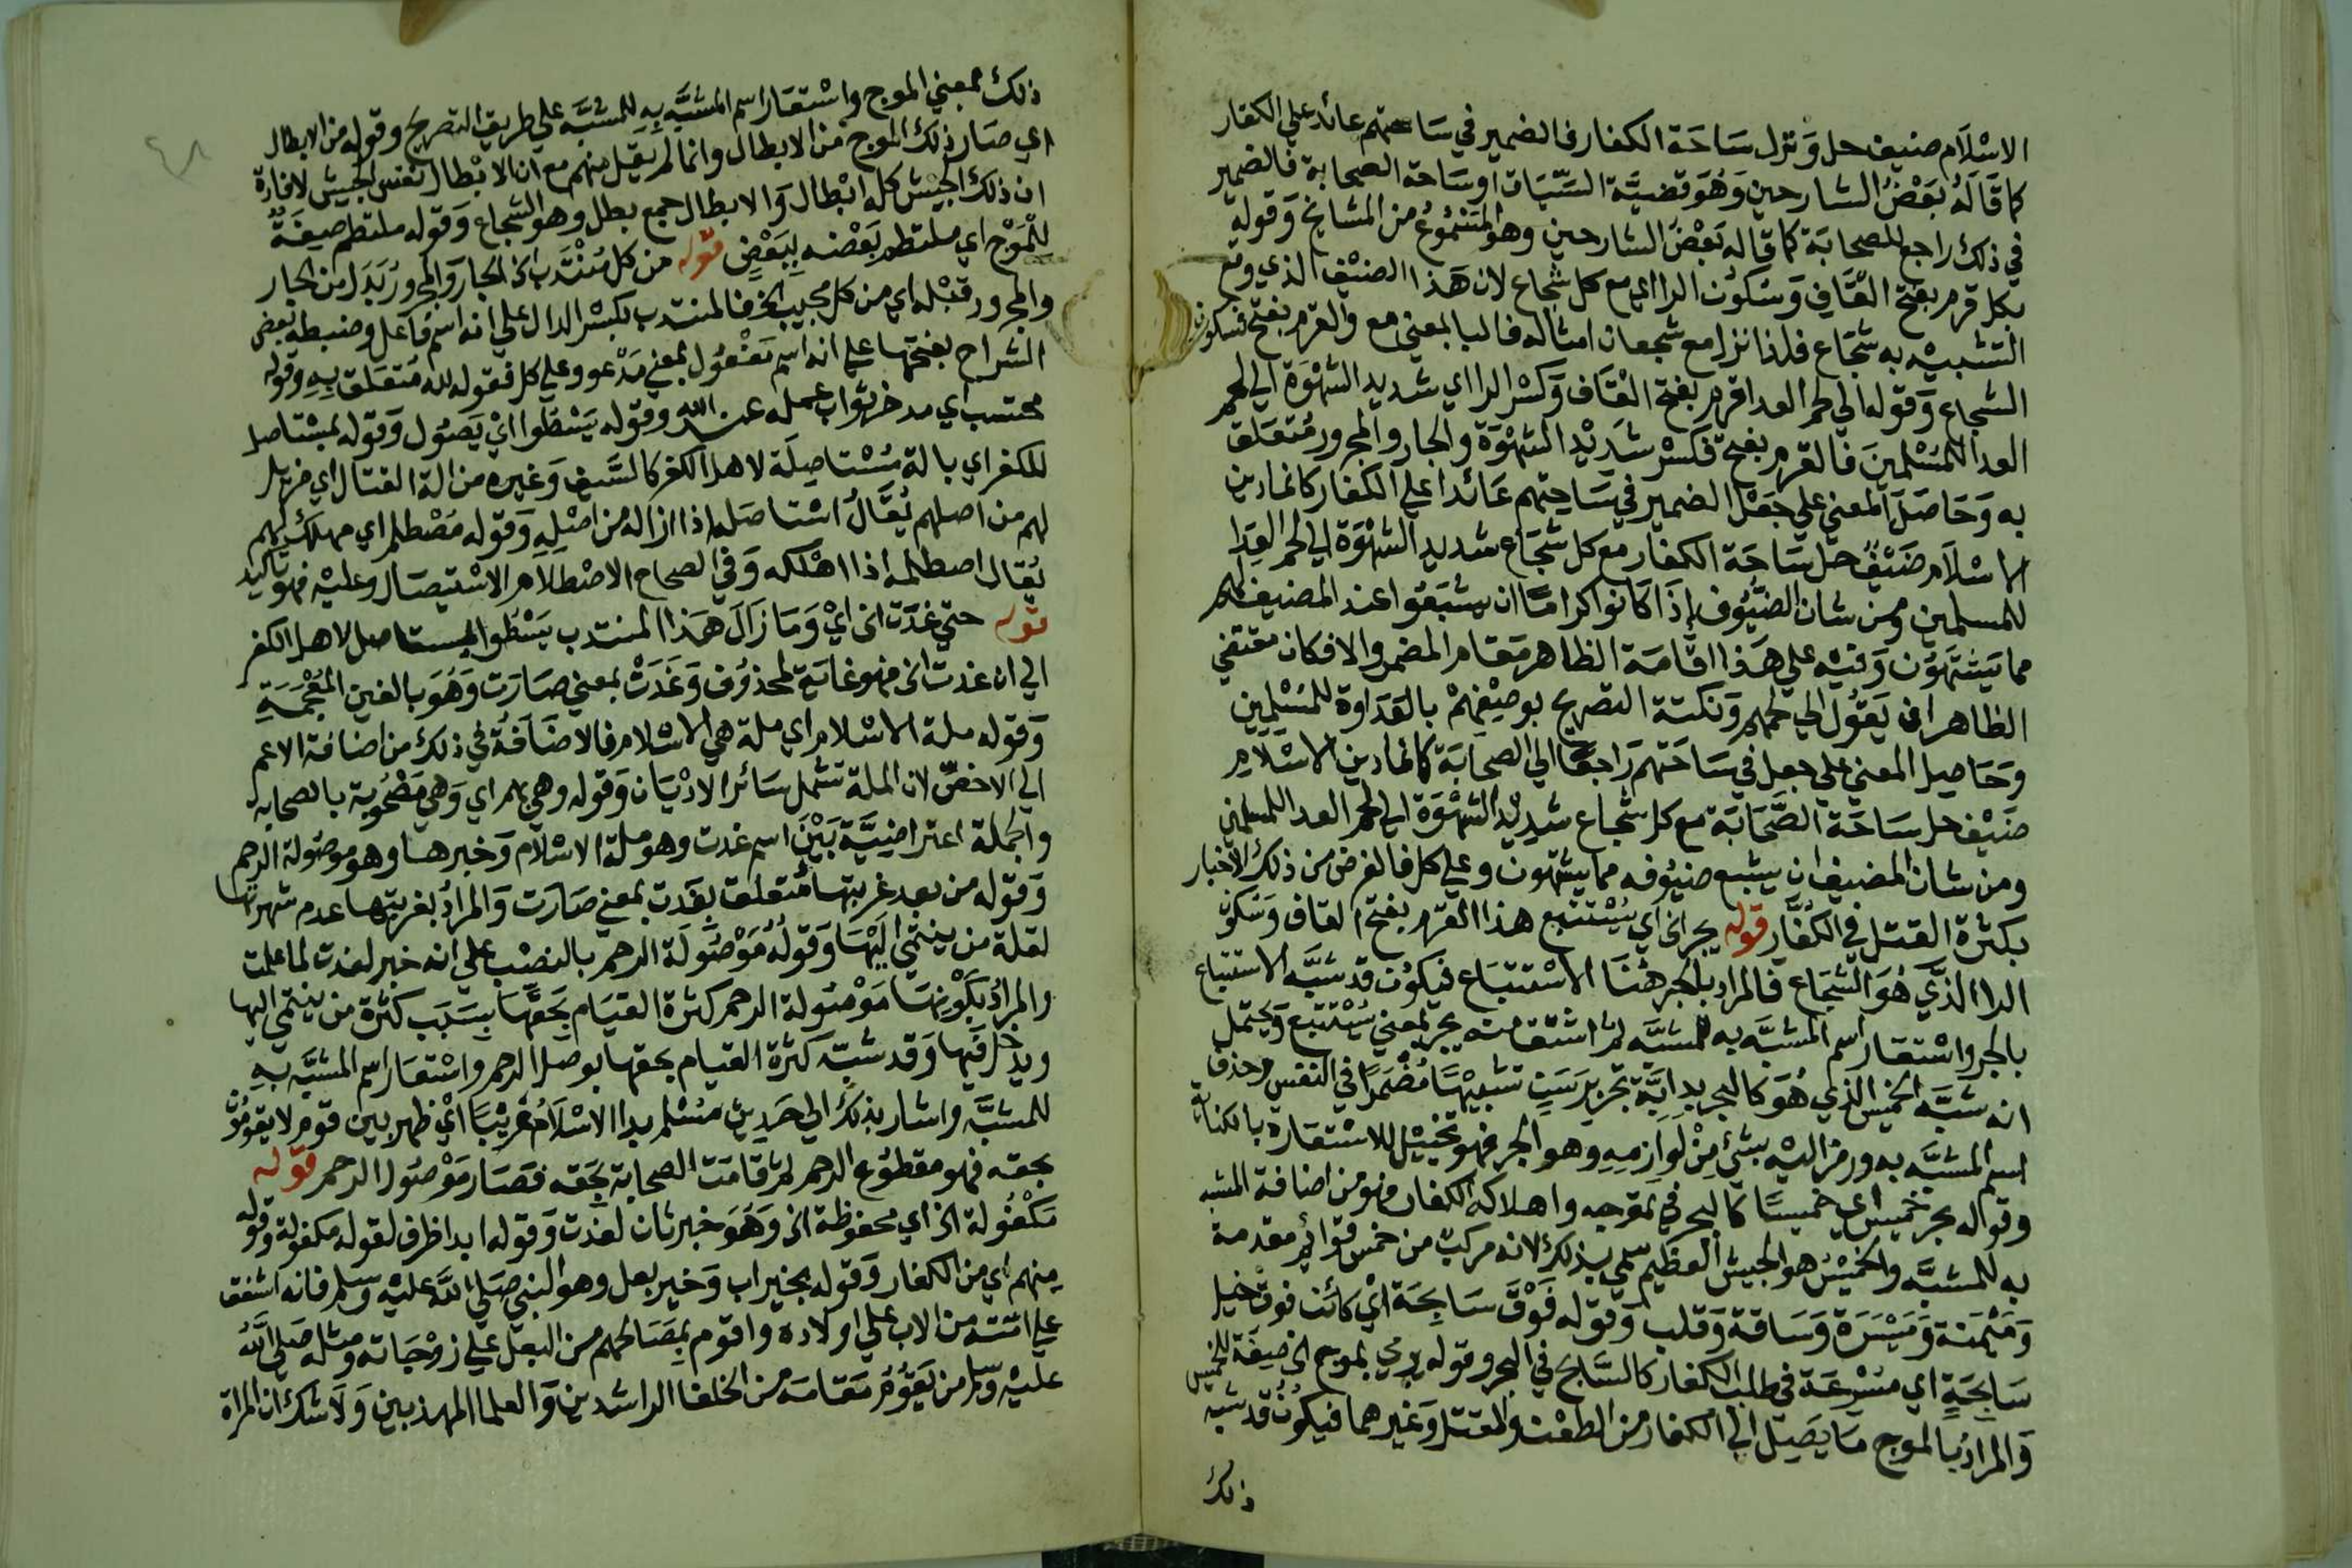 الاسْلَام ضيف حل وَنزل سَاحَة الكفار فالضمير في سَاحتهم عائد علي الكفار
كما قَالَهُ بَعْضُ الشارحين وَهُوَ قضيَّة السِّيَاق اوسَاحة الصحابة فالضمير
في ذلك راجع للصحابَة كما قاله بَعْضُ الشارحين وهو المسْمُوعُ من المشايخ وَقوله
بكل قرم بفتح القَاف وَسكوُن الرا اي مع كل شجاع لان هَذا الضيف الذي وقع
التشبيه به شجَاع فلذا نزل مع شجعان امثاله فالبا بمعني مع والقرم بفتح فسكون
الشجاع وَقوله الي لحم العدا قرم بفتح القَاف وَكسْر الرا اي شديد الشهْوَة الي لحم
العدا للمُسْلمينَ فالقرم بفتح فكسْر شدَيْد الشهْوَة والجار والمجرور مُتعَلق
به وَحَاصَل المعني علي جَعْل الضمير في سَاحتهم عَائدا علي الكفار كانما دين
الاسْلَام ضَيْفٌ حل سَاحَة الكفار مع كل شجَاع شديد الشهْوَة الي لحم العِدَا
للمسلمين ومن شان الضيُوف إذَا كَانوا كرامًا ان يشبَعُوا عند المضيف لهم
مما يَشتهَوُن وَفيْه علي هَذا اقامَة الظاهر مَقام المضمر والا فكان مقتضي
الظاهر ان يَقوُل الي لحمهم وَنكتة التصريح بوصِفهمْ بالعَدَاوة للمُسْلِمِين
وَحَاصِل المعني علي جعل في سَاحَتهم رَاجعًا الي الصحابَة كانما دين الاسْلَامِ
ضَيْف حل سَاحَة الصَّحَابَة مع كل شجاع شدِيْد الشهْوَة الي لحم العدا للمسلمين
ومن شان المضيف ان يشبع ضيُوفه مما يشتهون وعلي كل فالغرض من ذلك الاخبار
بكثرة القتل في الكُفَّار قوله يجر الخ اي يُسْتتبع هذا القرم بفتح القاف وَسَكوُن
الرا الذَّي هُوَ الشجَاع فالمراد بالجر هُنَا الاسْتتبَاع فيَكوُن قد شبَّه الاستتباع
بالجر واسْتعَار اسم المشبَّه به للمشبَّه ثم اشتق منه يجر بمعني يَسْتتبع وَيحتمل
انه شبَّه الخميس الذي هُوَ كالبحر بدابَّة تجر برَسَنٍ تشبيهًا مُضْمَرًا في النفس وحذف
اسم المشبَّه به ورمز اليْه بشيْ مِنْ لوَازمهِ وهو الجر فهو تخييْل للاسْتعَارة بالكناية
وقوله بحر خَميس اي خميسًا كالبحر في تموّجه واهلاكه الكفار فهو من اضافة المشبه
به للمشبَّه والخميْسُ هو الجيش العظيم سمي بذلك لانه مركبٌ من خمس قوَائم مقدمة
وَمَيْمَنة وَمَيْسَرَة وَسَاقة وَقلب وَقوله فوْقَ سَابحَة ايْ كائن فوق خيل
سَابِحَةٍ اي مسْرعَة في طلب الكفار كالسَّابح في البحر وقوله يرمي بموج الخ صِفَة للخميس
وَالمرادُ بالموج مَا يَصِل الي الكفار من الطعْن والقتل وَغيرهما فيكوُن قد شبه
ذلك
ذلك بمعني الموج واسْتعَار اسم المشبَّه بِهِ للمشبَّه علي طريق التصريح وقوله من الابطال
اي صَار ذلك الموج من الابطال وانما لم يقل منهم مع ان الابْطال نفس الجيْش لافادة
ان ذلك الجيْش كله ابْطال وَالابطال جمع بطل وهو الشجاع وَقوله ملتطم صِفَةٌ
لِلمَوْج اي ملتطم بَعْضه بِبَعْضٍ قوله من كل مُنْتَدبٍ الخ الجار وَالمجرور بَدَل من الجار
والمجرور قبْله اي من كل مجيب الخ فالمنتدب بكسْر الدال علي انه اسم فَاعل وضبطه بعض
الشراح بفتحها علي انه اسم مَفْعُول بمعني مَدْعو وعلي كل فقوله لله مُتعَلق بِهِ وقوله
محتسب اي مدخر ثواب عمله عند الله وقوله يَسْطوا ايْ يَصوُل وَقوله بمسْتاصل
للكفر اي بالة مسْتاصِلَة لاهل الكفر كالسَّيف وَغيره من الة القتال اي مزيل
لهم من اصلهم يُقَالُ اسْتاصَله اذا ازاله من اصْلِهِ وَقوله مصْطلم اي مهلك لهم
يُقال اصطلمه اذا اهْلكه وَفي الصحاح الاصْطلَام الاسْتيصَال وعليْه فهو تاكيد
قوله حتي غدَت الخ ايْ وَمَا زَالَ هَذا المنتدب يَسْطُوا بمستاصل لاهل الكفر
الي ان غدت الخ فهو غاية لمحذوُف وَغدَتْ بمعني صَارَت وَهُوَ بالغين المعْجَمَةِ
وَقوله ملة الاسْلام اي ملة هي الاسْلام فالاضَافَةُ في ذلك من اضافة الاعم
الي الاخصّ لان الملة تشمل سَائر الادْيَان وَقوله وهي بهم اي وَهي مَصْحُوبة بالصحابة
والجملة اعتراضيَّة بَيْنَ اسم غدت وهو ملة الاسْلام وَخبرها وهو موصُولة الرحم
وَقوله من بعد غربتها مُتعلق بغَدت بمعني صَارَت وَالمرادُ بغربتها عدم شهرتها
لقلة من ينتمي اليْهَا وَقولُهُ مَوْصُولَة الرحم بالنصْب علي انه خبر لغدت لما علمت
والمرادُ بكوْنِهَا مَوْصُولة الرحم كثرة القيَام بحَقّهَا بسَبَب كثرة من ينتمي اليها
ويدخل فيْهَا وَقد شبّه كثرة القيام بحقها بوصل الرحم واسْتعَار اسم المشبَّه بِهِ
للمشبَّه واشار بذلك الي حَدِيث مُسْلم بدا الاسْلَامُ غَرِيْبًا ايْ ظهر بين قوم لا يقومُوُن
بحقه فهو مقطوُع الرحم ثم قامَت الصحابة بحَقه فصَار مَوْصُول الرحم قوله
مَكْفُولة الخ اي محفوظة الخ وَهُوَ خبر ثان لغدَت وَقوله ابدا ظرف لقوله مكفولة وقوله
منهم اي من الكفار وَقوله بخير اب وَخير بعل وهو النبي صَلي اللهُ عليْه وسلم فانه اشفق
علي امّته من الاب علي اولاده واقوم بمصَالحهم من البعل علي زوْجَاته ومثله صَلي اللَّهُ
عليْه وسلم من يَقوُمُ مَقامَه من الخلفا الراشدين وَالعلما المهذبين وَلَاشك ان المراة